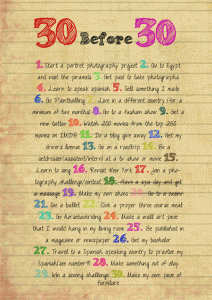 30 Before 30
1. Start a portrait photography project 2. Go to Egypt
and visit the piramids 3. Get paid to take photographs
4. Learn to speak spanish 5. Sell something I made
6. Go Paintballing 7. Live in a different country (for a
minimum of two months) 8. Go to a fashion show 9. Get a
new tattoo 10. Watch 250 movies from the top 250
movies on IMDB 11. Do a blog give away 12. Get my
drivers license 13. Go on a roadtrip 14. Be a
actress/assistent/intern at a tv show or movie 15.
Learn to sing 16. Revisit New York 17. Join a pho-
tography challenge/contest 18. Have a spa day and get
a massage 19. Make my own shoes 20. Go to a
21. See a ballet 22. Cook a proper three course meal
23. Go horsebackriding 24. Make a wall art piece
that I would hang in my living room 25. Be published in
a magazine or newspaper 26. Get my bachelor
27. Travel to a Spanish speaking country to practice my
Spanish(see number 4) 28. Make something out of clay
29. Win a sewing challenge 30. Make my own piece of
furniture